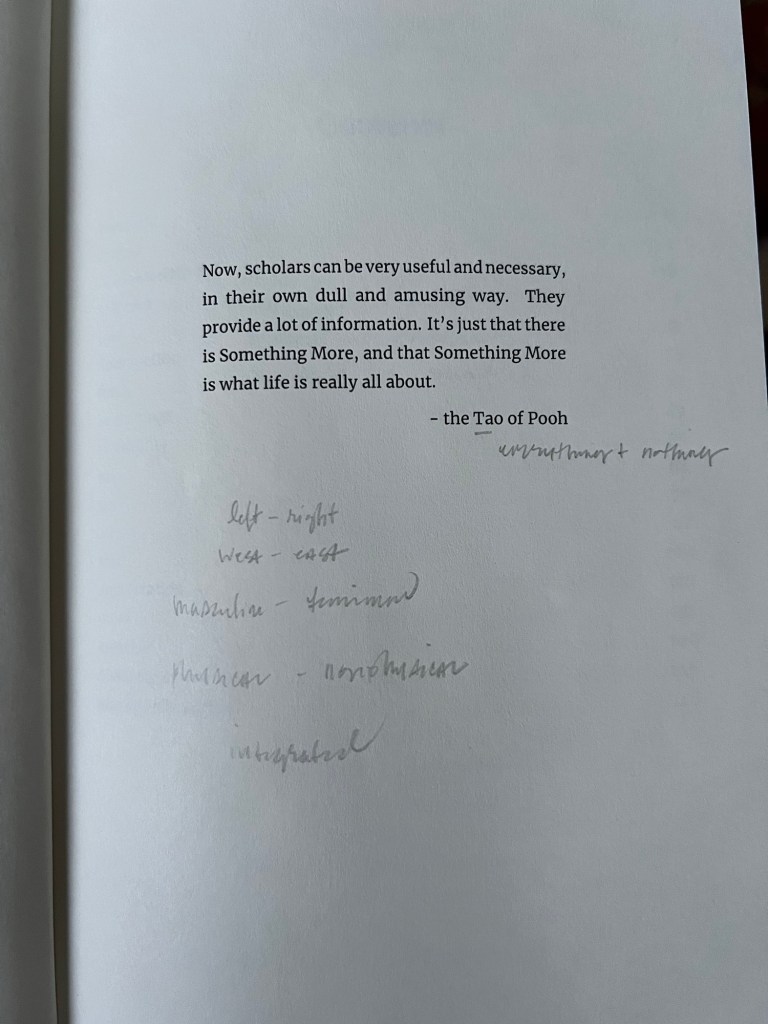 Now, scholars can be very useful and necessary,
in their own dull and amusing way. They
provide a lot of information. It's just that there
is Something More, and that Something More
is what life is really all about.
– the Tao of Pooh
everything + nothing
left - right
west - east
masculine - feminine
physical - nonphysical
integrated